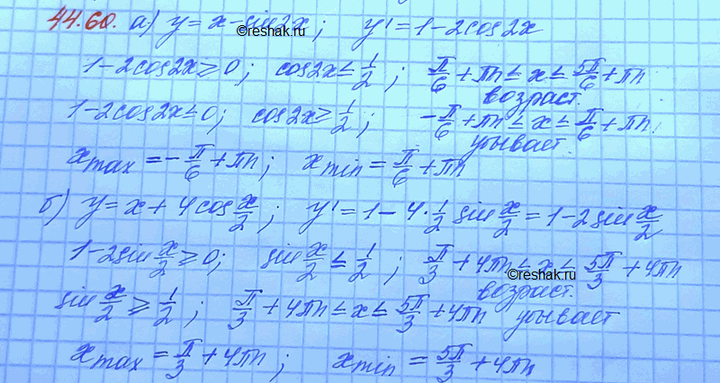 44.60. а) y = x - sin2x; y' = 1 - 2cos2x
©reshak.ru
1 - 2cos2x ≥ 0; cos2x ≤ 1/2; π/6 + πn ≤ x ≤ 5π/6 + πn
возраст.
1 - 2cos2x ≤ 0; cos2x ≥ 1/2; -π/6 + πn ≤ x ≤ π/6 + πn;
убывает.
x max = -π/6 + πn; x min = π/6 + πn
б) y = x + 4cos x/2; y' = 1 - 4·1/2 sin x/2 = 1 - 2sin x/2
1 - 2sin x/2 ≥ 0; sin x/2 ≤ 1/2; π/3 + 4πn ≤ x ≤ 5π/3 + 4πn
©reshak.ru
возраст.
sin x/2 ≥ 1/2; π/3 + 4πn ≤ x ≤ 5π/3 + 4πn убывает
x max = π/3 + 4πn; x min = 5π/3 + 4πn